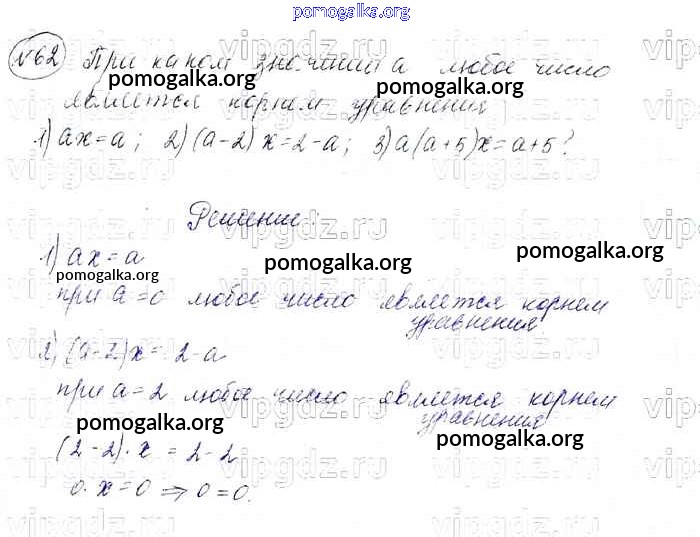 pomogalka.org
№62 При каком значении а любое число
является корнем уравнения
1) ax=a; 2) (a-2)x=2-a; 3) a(a+5)x=a+5?
Решение:
1) ax=a
при a=0 любое число является корнем
уравнения
2) (a-2)x=2-a
при a=2 любое число является корнем
уравнения
(2-2)·x=2-2
0·x=0 ⇒ 0=0.
pomogalka.org
pomogalka.org
pomogalka.org
pomogalka.org
pomogalka.org
pomogalka.org
pomogalka.org
vipgdz.ru